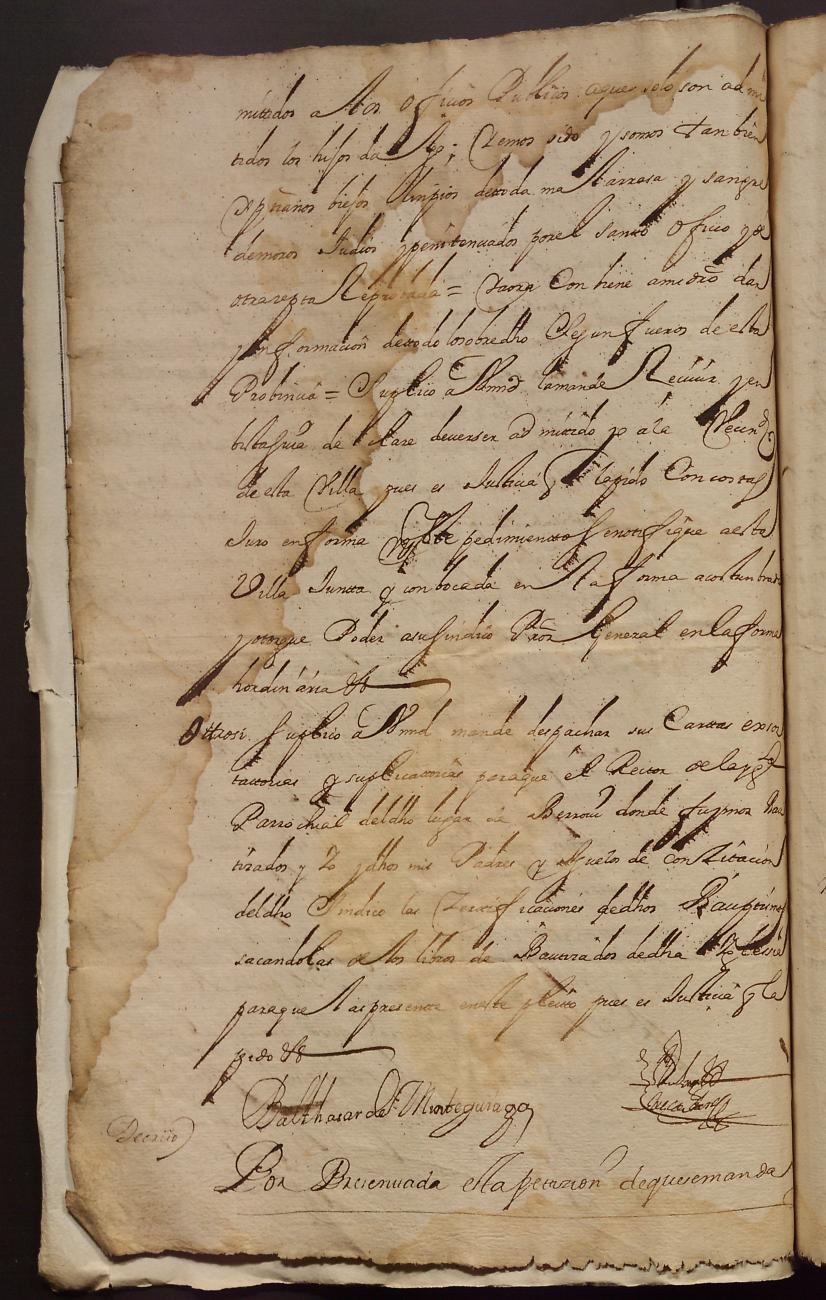 mitidos a los officios Publicos aque solo son admi
tidos los hijos da algo; Yemos sido y somos tanbien
Xptianos biejos limpios de toda mala Rassa y sangre
de moros Judios y penitenciados por el santo officio y de
otra zepta Reprobada = Yaora Conbiene a mi dro dar
ynformacion de todo lo sobredho segun fueros de esta
Probincia = Suplico a Vmd la mande Reciuir y en
bista de deuer ser admitido yo a la Vecind
de esta Villa pues es Justicia q la pido Con costas
Juro en forma y este pedimiento se notifique a esta
Villa Junta y conbocada en la forma acostunbrada
y otorgue Poder a su sindico Pror General en la forma
hordinaria &
Otrosi Suplico a Vmd mande despachar sus Cartas exsor
tatorias y suplicatorias para que el Rector de la ygl
Parrochial del dho lugar de Berroui donde fuymos Bau
tizados yo y dhos mis Padres y Aguelos de con Zitacion
del dho Sindico las Zertificaciones de dhos Bauptismos
sacandolas de los libros de Bautizados de dha Yglessia
para que las presente en este pleito pues es Justicia q la
pido &
Balthasar de Minteguiaga
Decreto
Por Presentada esta petizion de que se manda